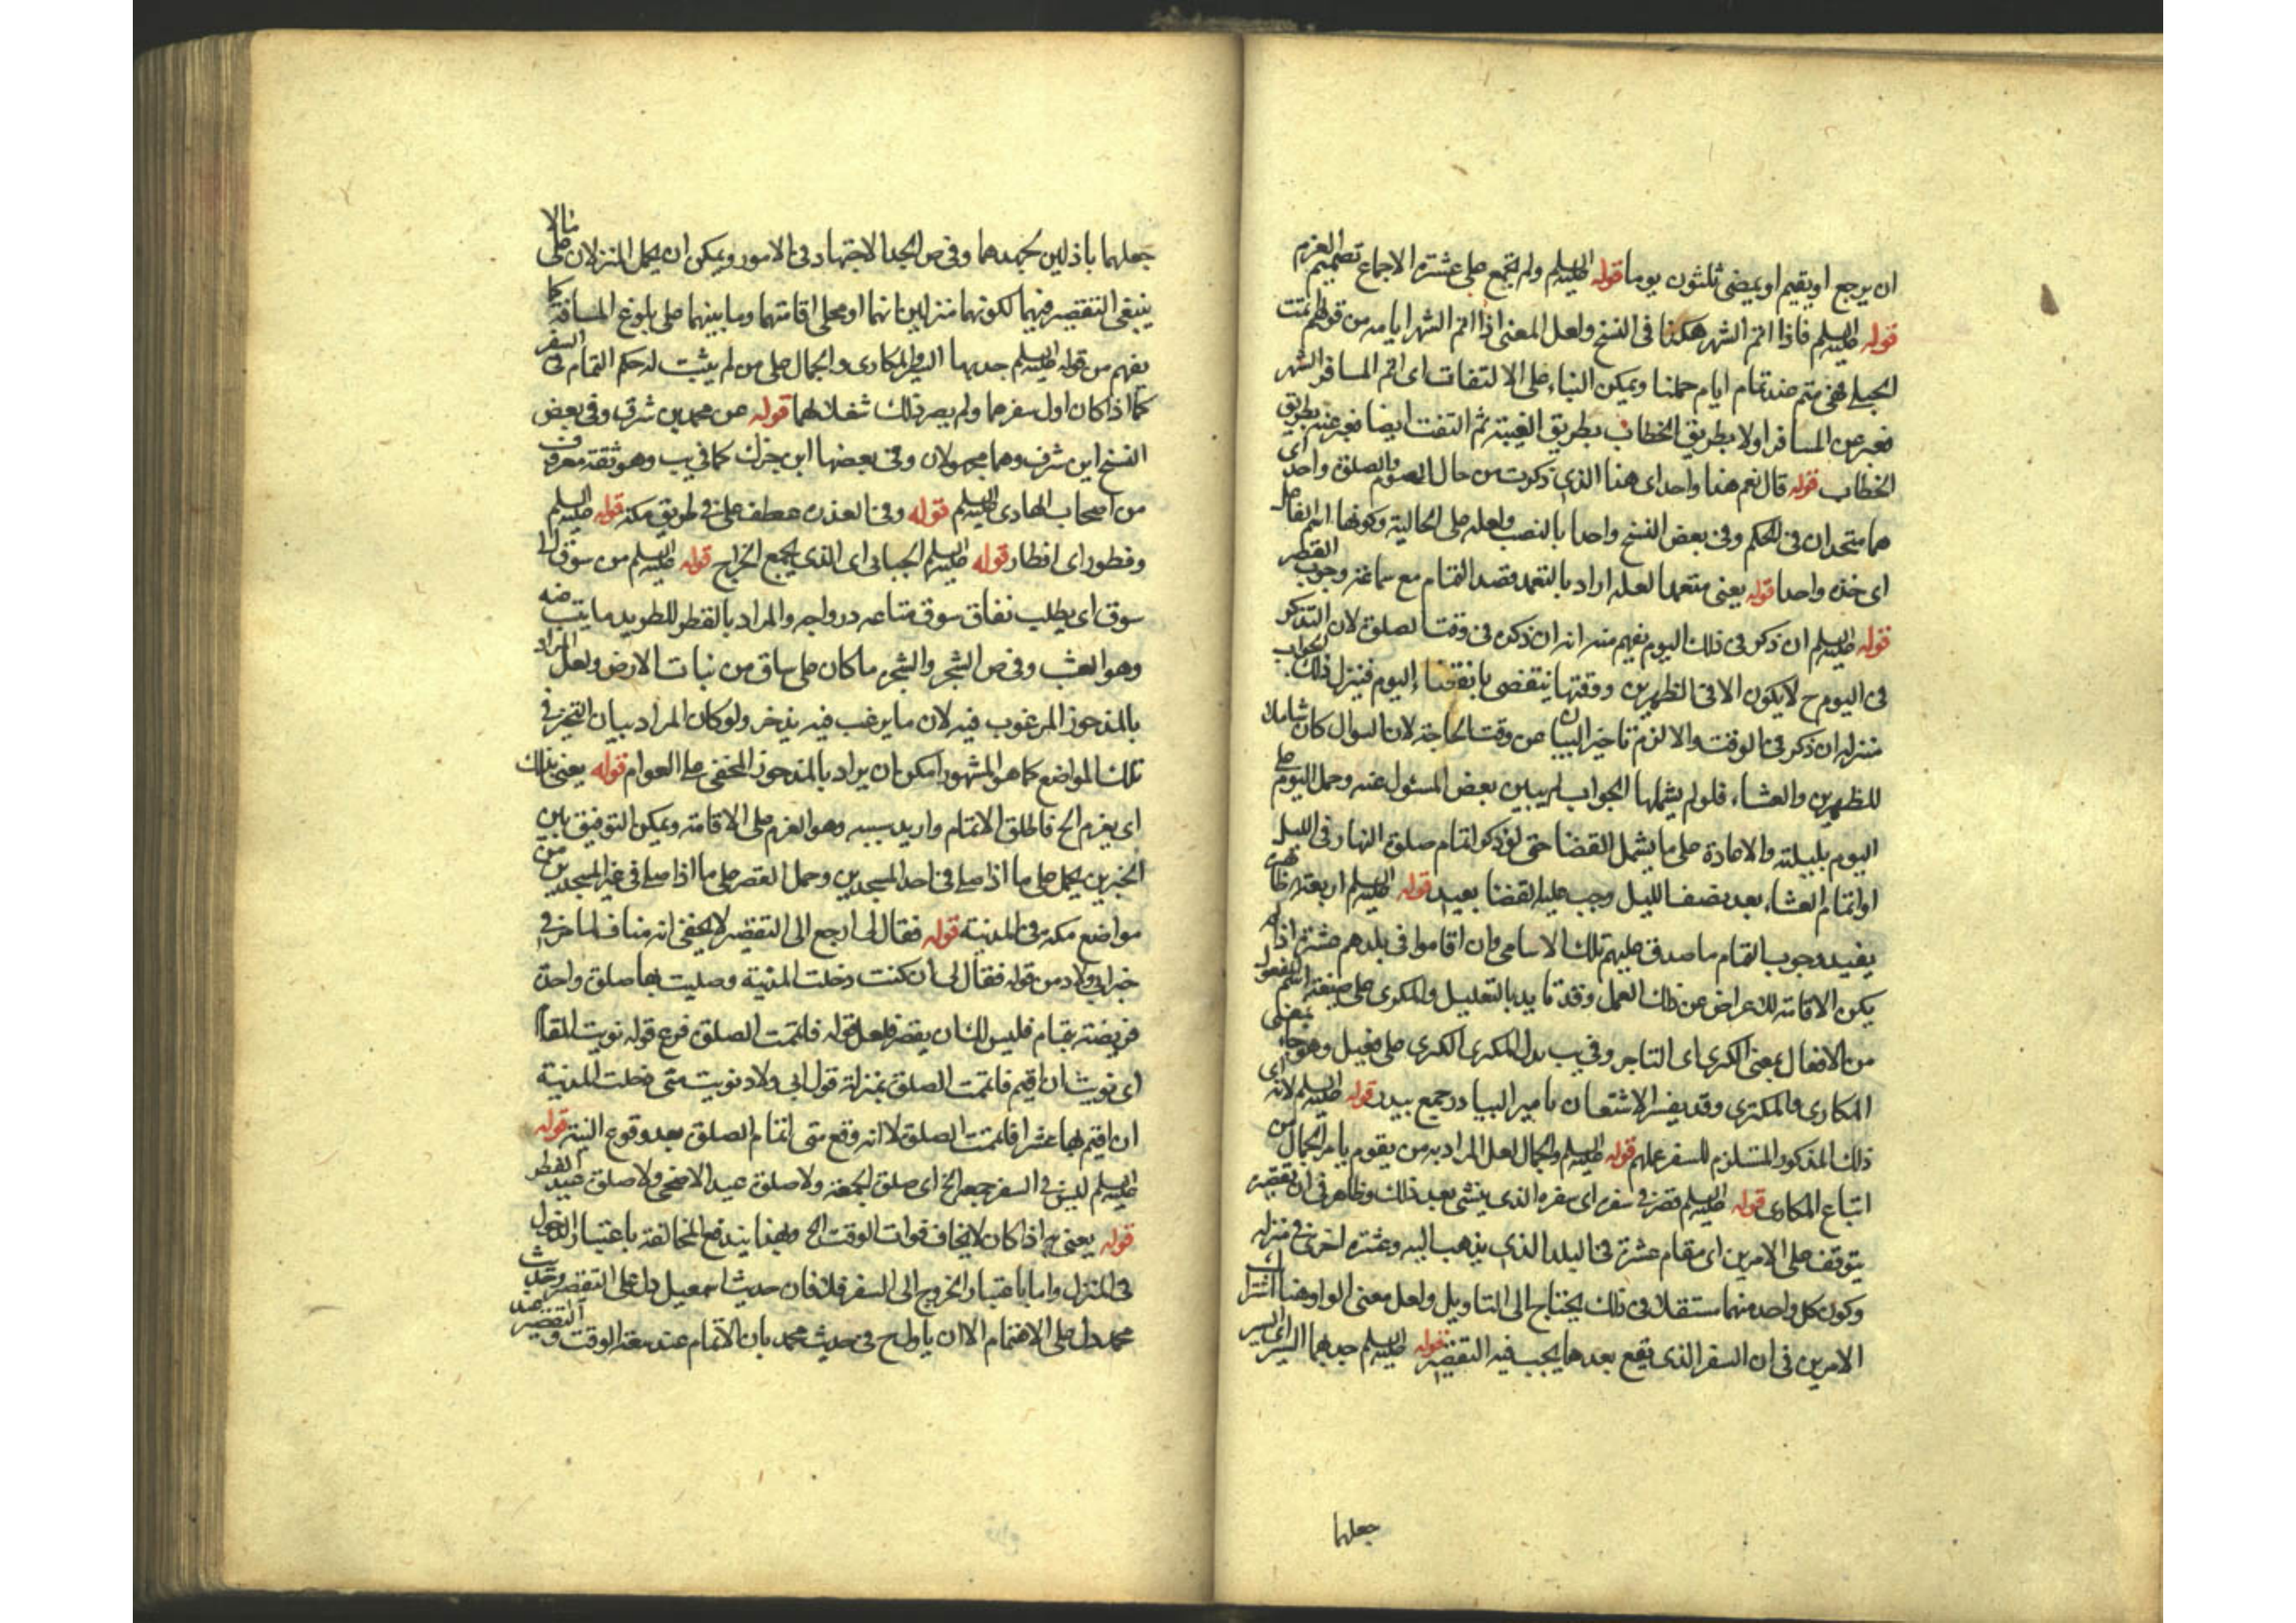 ان يرجع او يقيم او يمضى ثلثون يوما قوله عليه السلم ولم يجمع على عشرة الاجماع تصميم العزم
قوله عليه السلم فاذا اتم الشهر هكذا فى النسخ ولعل المعنى اذا اتم الشهر ايامه من قولهم تمت
الحبلى فهى متم عند تمام ايام حملها ويمكن البناء على الالتفات اى اتم المسافر الشهر
فعبر عن المسافر اولا بطريق الخطاب بطريق الغيبة ثم التفت ايضا فعبر عنه بطريق
الخطاب قوله قال نعم هذا واحد اى هذا الذى ذكرت من حال الصوم والصلوة واحد اى
هما متحدان فى الحكم وفى بعض النسخ واحدا بالنصب ولعله على الحالية وكونها اسم الفاعل
اى خذه واحدا قوله يعنى متعمدا لعله اراد بالتعمد قصد التمام مع سماعه وجوب القصر
قوله عليه السلم ان ذكر فى ذلك اليوم يفهم منه انه ان ذكر فى وقت الصلوة لان التذكر
فى اليوم ح لا يكون الا فى الظهرين ووقتها ينقضى بانقضاء اليوم فينزل ذلك الجواب
منزلة ان ذكر فى الوقت والا لزم تاخير البيان عن وقت الحاجة لان السوال كان شاملا
للظهرين والعشاء فلو لم يشملها الجواب لم يبين بعض المسئول عنه وحمل اليوم على
اليوم بليلته والاعادة على ما يشمل القضا حتى لو ذكر اتمام صلوة النهار فى الليل
او اتمام العشاء بعد نصف الليل وجب عليه القضا بعيد قوله عليه السلم اربعة ظاهره
يفيد وجوب التمام ما صدق عليهم تلك الاسامى وان اقاموا فى بلدهم عشرة اذا لم
يكن الاقامة للاعراض عن ذلك العمل وقد تايد بالتعليل والمكرى على صيغة اسم المفعول
من الافعال بمعنى الكرى اى التاجر وفى يب بدل المكرى الكرى على فعيل وهو جاء بمعنى
المكارى والمكترى وقد يفسر الاشتقان بامير البيادر جمع بيدر قوله عليه السلم لانه اى
ذلك المذكور المستلزم للسفر عملهم قوله عليه السلم والجمال لعل المراد به من يقوم بامر الجمال من
اتباع المكارى قوله عليه السلم قصر فى سفره اى سفره الذى ينشئ بعد ذلك وظاهره فى ان تقصيره
يتوقف على الامرين اى مقام عشرة فى البلد الذى يذهب اليه وعشرة اخرى فى منزله
وكون كل واحد منهما مستقلا فى ذلك يحتاج الى التاويل ولعل معنى الواو هنا اشتراك
الامرين فى ان السفر الذى يقع بعدها يجب فيه التقصير قوله عليه السلم جد بهما السير اى السير
جعلهما
جعلهما باذلين لجهدهما وفى ص الجد الاجتهاد فى الامور ويمكن ان يحمل المنزلان على ما لا
ينبغى التقصير فيهما لكونهما منزلين لهما او محلى اقامتهما وما بينهما على بلوغ المسافة كما
يفهم من قوله عليه السلم جد بهما السير والمكارى والجمال على من لم يثبت له حكم التمام فى السفر
كما اذا كان اول سفرهما ولم يصر ذلك شغلا لهما قوله عن محمد بن شرف وفى بعض
النسخ ابن شرف وهما مجهولان وفى بعضها ابن جزك كما فى يب وهو ثقة معروف
من اصحاب الهادى عليه السلم قوله وفى العذر عطف على فى طريق مكة قوله عليه السلم
وفطور اى افطار قوله عليه السلم الجبابى اى الذى يجمع الخراج قوله عليه السلم من سوق الى
سوق اى يطلب نفاق سوق متاعه درواجه والمراد بالقطر للطريد ما يتبعه
وهو العشب وفى ص الشجر والشجرة ما كان على ساق من نبات الارض ولعل المراد
بالمذخور المرغوب فيه لان ما يرغب فيه يذخر ولو كان المراد بيان التخيير فى
تلك المواضع كما هو المشهور امكن ان يراد بالمذخور المخفى على العوام قوله يعنى بذلك
اى يعزم الخ فاطلق الاتمام واريد سببه وهو العزم على الاقامة ويمكن التوفيق بين
الخبرين بحمل على ما اذا صلى فى احد المسجدين وحمل القصر على ما اذا صلى فى غير المسجدين من
مواضع مكة فى المدينة قوله فقال لى ارجع الى التقصير لا يخفى انه مناف لما مر فى
خبر ابى ولاد من قوله فقال لى ان كنت دخلت المدينة وصليت بها صلوة واحدة
فريضة بتمام فليس لك ان يقصر فلعل قوله فاتممت الصلوة فرع قوله نويت المقام
اى نويت ان اقيم فاتممت الصلوة بمنزلة قول ابى ولاد نويت متى دخلت المدينة
ان اقيم بها عشرا فاتممت الصلوة لا انه وقع متى اتمام الصلوة بعد وقوع النية قوله
عليه السلم ليس فى السفر جمعة الخ اى صلوة الجمعة ولا صلوة عيد الاضحى ولا صلوة عيد الفطر
قوله يعنى ح اذا كان لا يخاف فوات الوقت الخ وبهذا يندفع المخالفة باعتبار الدخول
فى المنزل واما باعتبار الخروج الى السفر فلا فان حديث اسمعيل دل على التقصير وحديث
محمد دل على الاتمام الا ان ياول ح فى حديث محمد بان الاتمام عند سعة الوقت والتقصير عند